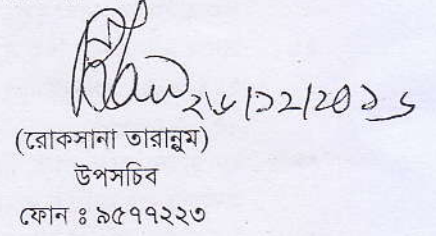 ২৮/১২/২০১৬
(রোকসানা তারান্নুম)
উপসচিব
ফোন ঃ ৯৫৭৭২২৩